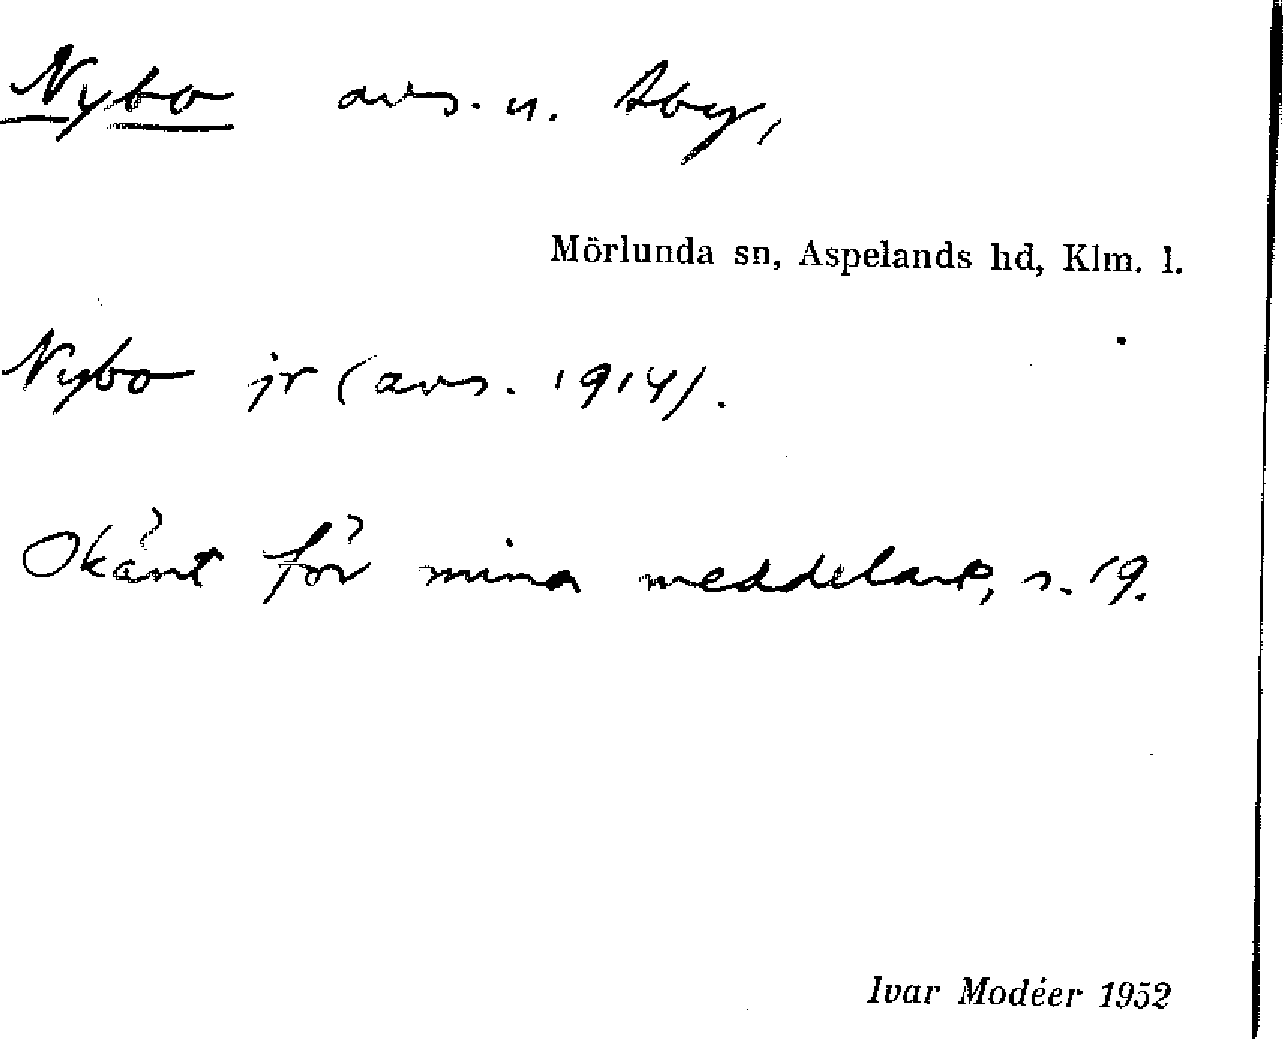 Nybo avs. u. Åby,
Mörlunda sn, Aspelands hd, Klm. l.
Nybo jr (avs. 1914).
Okänt för mina meddelare, s. 19.
Ivar Modéer 1952